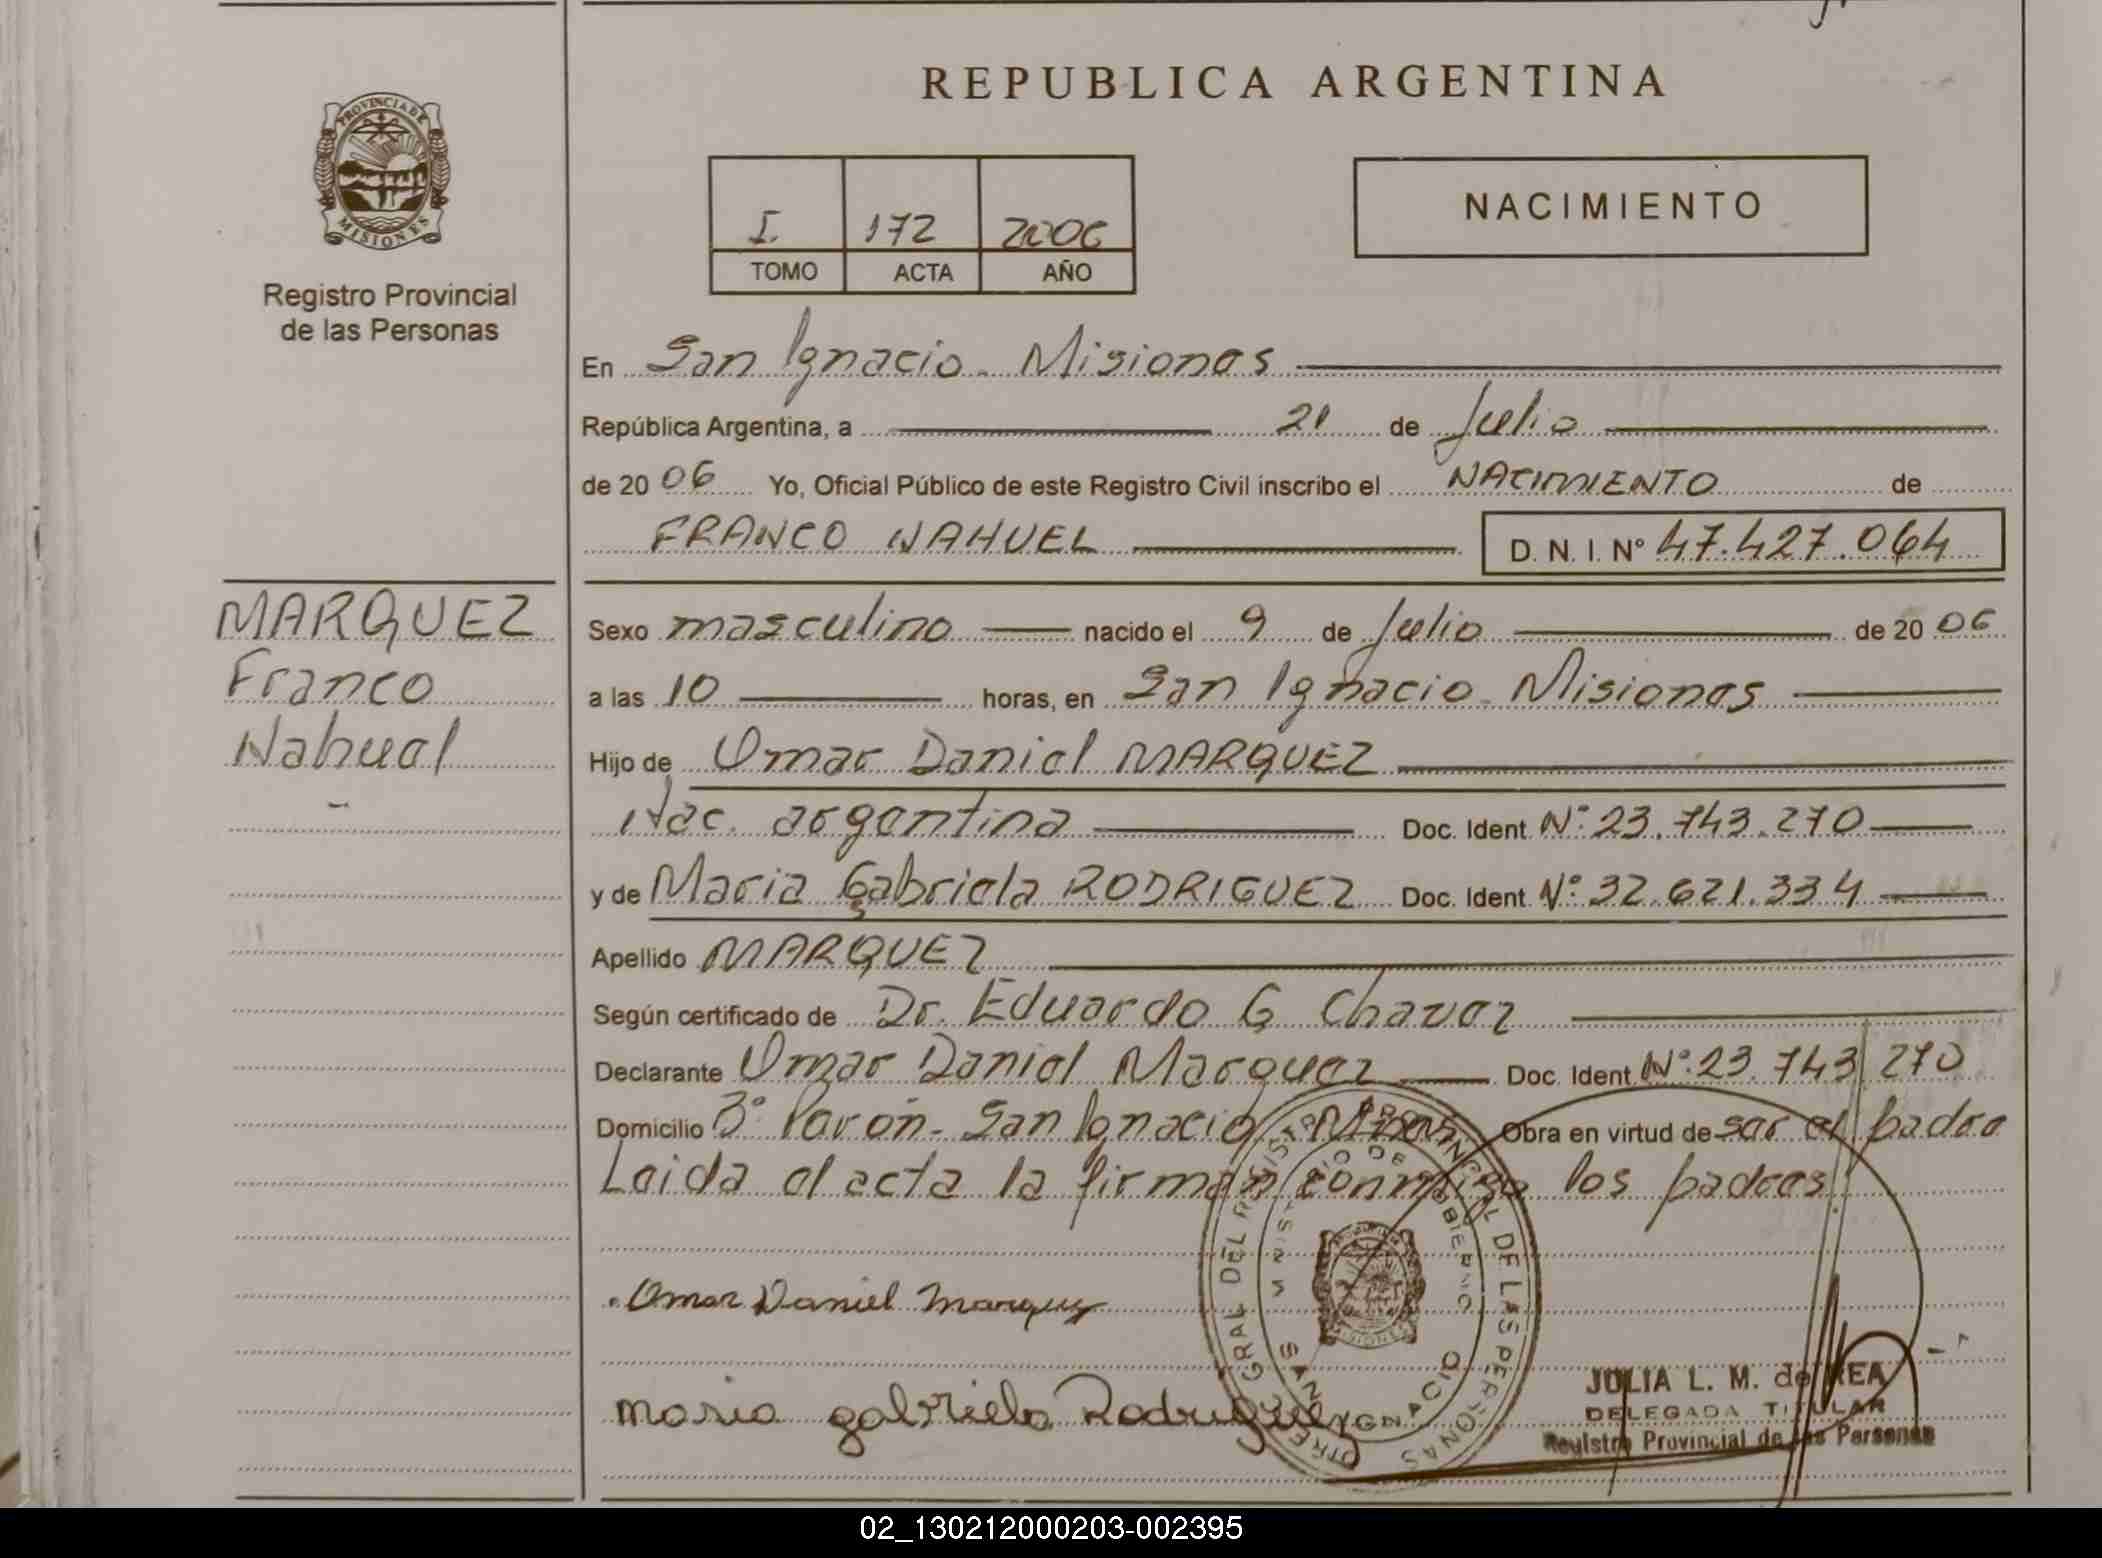 REPUBLICA ARGENTINA
PROVINCIA DE
MISIONES
Registro Provincial
de las Personas
I. 172 2006
TOMO ACTA AÑO
NACIMIENTO
En San Ignacio - Misiones
República Argentina, a 21 de Julio
de 20 06 Yo, Oficial Público de este Registro Civil inscribo el NACIMIENTO de
FRANCO NAHUEL D. N. I. Nº 47.427.064
MARQUEZ
Franco
Nahuel
Sexo masculino nacido el 9 de Julio de 20 06
a las 10 horas, en San Ignacio - Misiones
Hijo de Omar Daniel MARQUEZ
Nac. argentina Doc. Ident. Nº: 23.743.270
y de Maria Gabriela RODRIGUEZ Doc. Ident. Nº: 32.621.334
Apellido MARQUEZ
Según certificado de Dr. Eduardo G Chavez
Declarante Omar Daniel Marquez Doc. Ident. Nº: 23.743.270
Domicilio 3º San Ignacio Obra en virtud de ser el padre
Leida el acta la firman conmigo los padres
Omar Daniel Marquez
maria gabriela Rodriguez
MINISTERIO DE GOBIERNO
SAN IGNACIO
MISIONES
JULIA L. M. de REA
DELEGADA TITULAR
Registro Provincial de las Personas
02_130212000203-002395